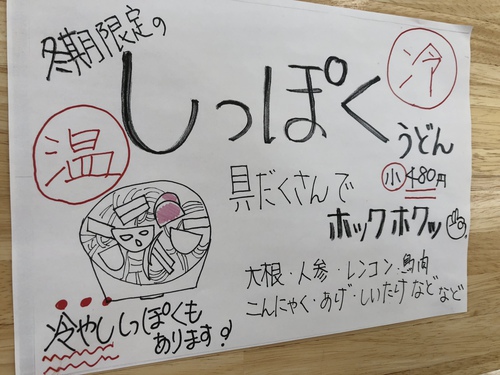 冬期限定の
しっぽく
冷
温
うどん
小 480円
具だくさんで
ホックホクッ
大根・人参・レンコン・鳥肉
こんにゃく・あげ・しいたけなどなど
冷やししっぽくも
あります!